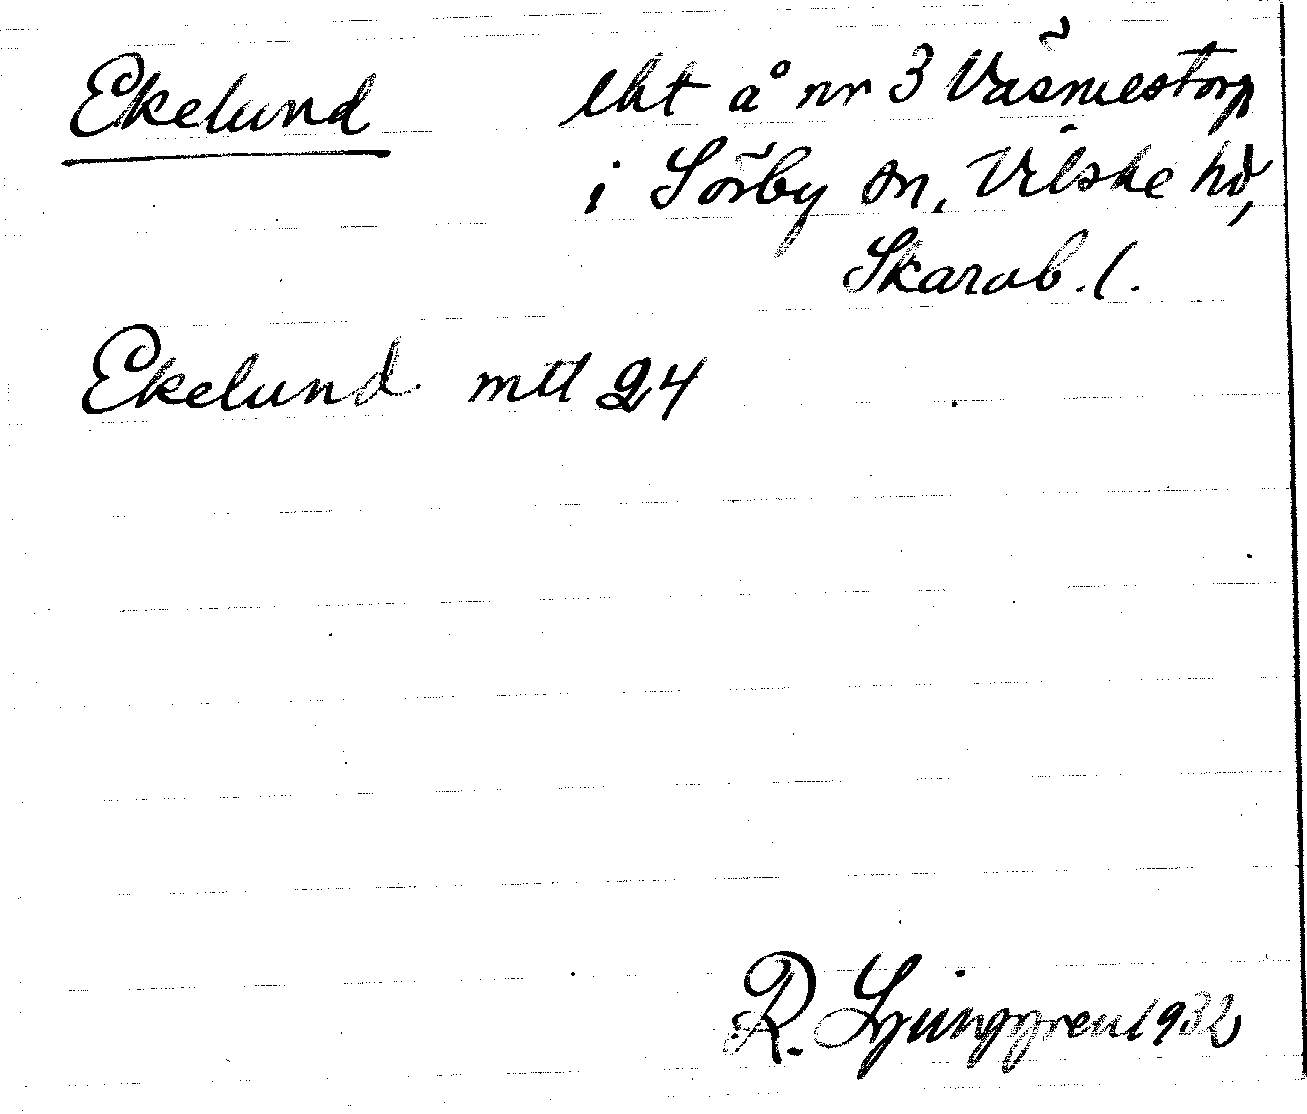 Ekelund lht å nr 3 Väsmestorp
i Sörby sn, Vilske hd,
Skarab. l.
Ekelund mtl 24
R. Ljunggren 1932